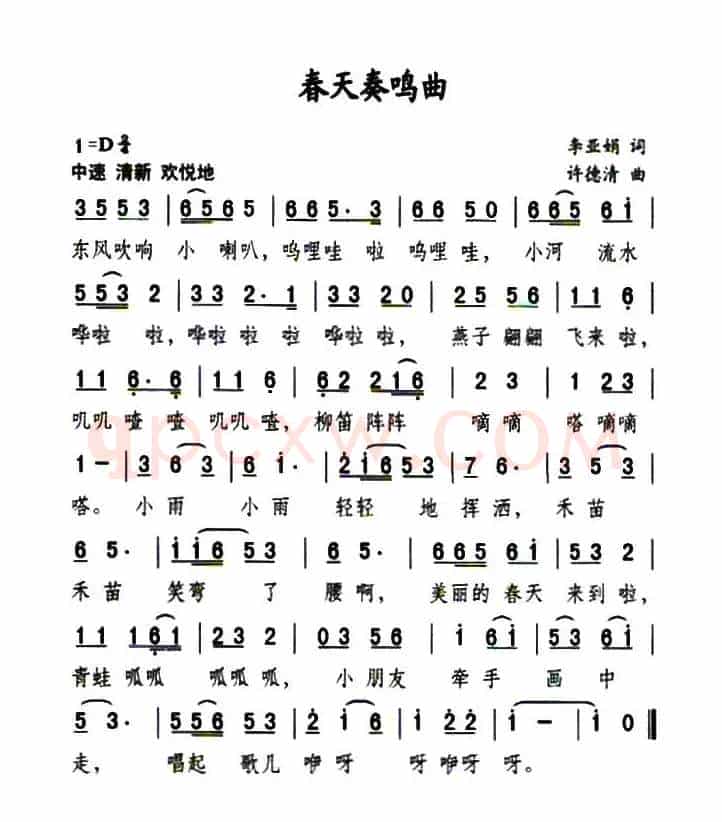 春天奏鸣曲
1=D 2/4
李亚娟 词
中速 清新 欢悦地
许德清 曲
3 5 5 3 | 6 5 6 5 | 6 6 5· 3 | 6 6 5 0 | 6 6 5 6 i |
东风吹响 小 喇叭，呜哩哇 啦 呜哩 哇， 小河 流水
5 5 3 2 | 3 3 2· 1 | 3 3 2 0 | 2 5 5 6 | 1 1 6 |
哗啦 啦，哗啦 啦 啦 哗啦 啦， 燕子 翩翩 飞来 啦，
1 1 6· 6 | 1 1 6 | 3 5 3 2 2 1 6 | 2 3 | 1 2 3 |
叽叽 喳 喳 叽叽 喳，柳笛 阵阵 嘀 嘀 嗒 嘀嘀
1 - | 3 6 3 | 6 i· | 2 i 6 5 3 | 7 6· | 3 5 3 |
嗒。 小 雨 小 雨 轻轻 地 挥 洒， 禾 苗
6 5· | i i 6 5 3 | 3 2· | 6 6 5 6 i | 3 3 2 |
禾 苗 笑弯 了 腰 啊， 美丽的 春天 来到 啦，
1 1 1 6 1 | 2 3 2 | 0 3 5 6 | i 6 i | 5 6 5 |
青蛙 呱呱 呱呱 呱， 小 朋友 牵 手 画 中
5 3· | 5 5 6 5 3 | 2 i 6 | i 2 2 | i - | i 0 ‖
走， 唱起 歌儿 咿 呀 呀 咿呀 呀。
qpcxw.COM